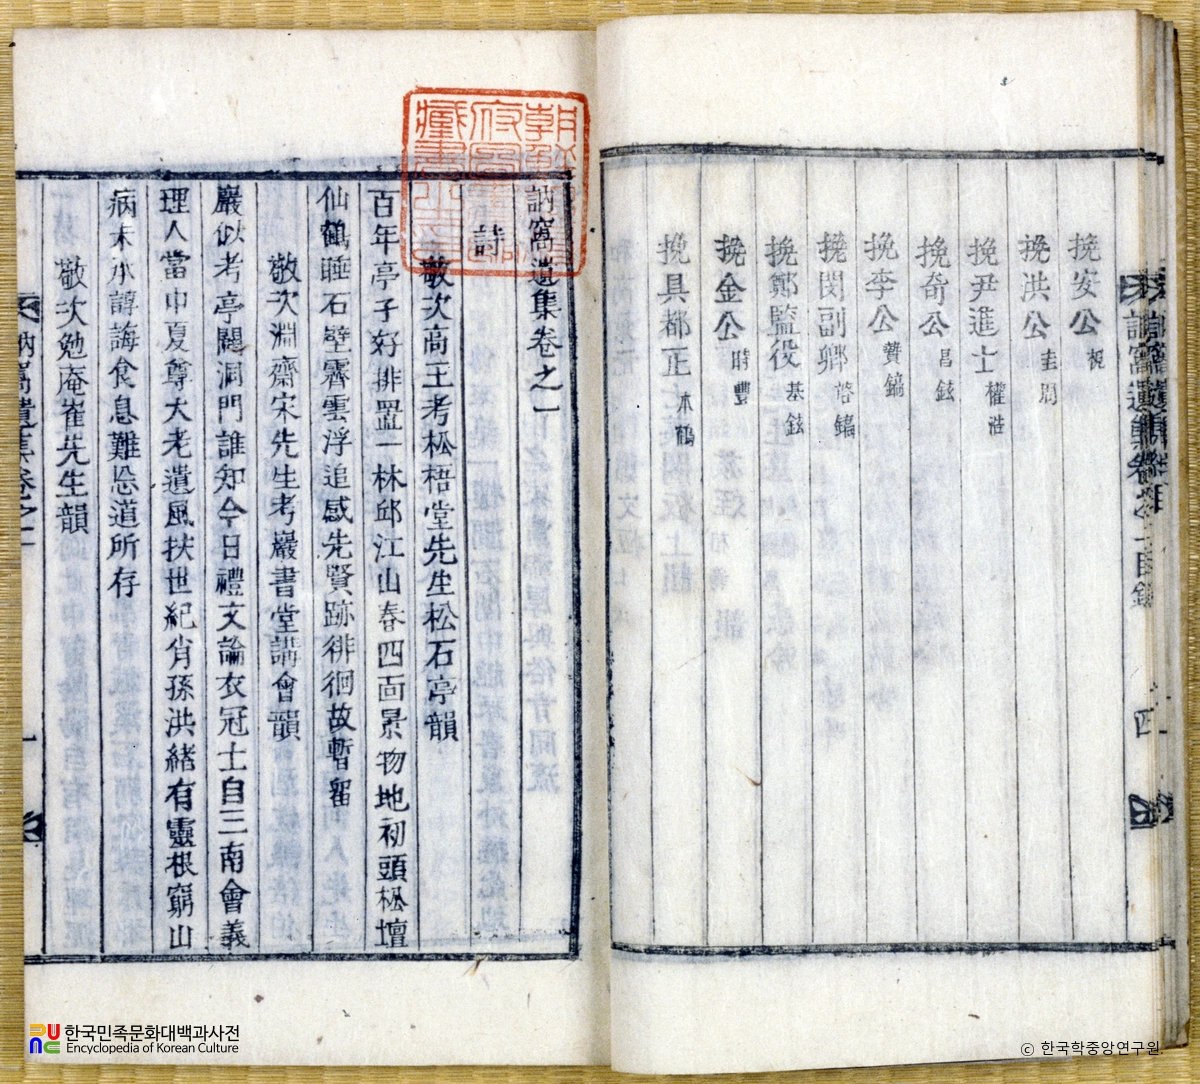 挽安公 梶
挽洪公 圭周
挽尹進士 權浩
挽奇公 昌鉉
挽李公 贊鎬
挽閔副卿 啓鎬
挽鄭監役 基鉉
挽金公 時豐
挽具都正 本鶴
訥窩遺集卷之一
詩
敬次商王考松梧堂先生松石亭韻
百年亭子好排置一林邱江山春四面景物地初頭松壇
仙鶴睡石壁霽雲浮追感先賢跡徘徊故暫留
敬次淵齋宋先生考巖書堂講會韻
巖似考亭闢洞門誰知今日禮文論衣冠士自三南會義
理人當中夏尊大老遺風扶世紀肖孫洪緒有靈根窮山
病未承諄誨食息難忘道所存
敬次勉庵崔先生韻
訥窩遺集卷之一
一
한국민족문화대백과사전
Encyclopedia of Korean Culture
ⓒ 한국학중앙연구원